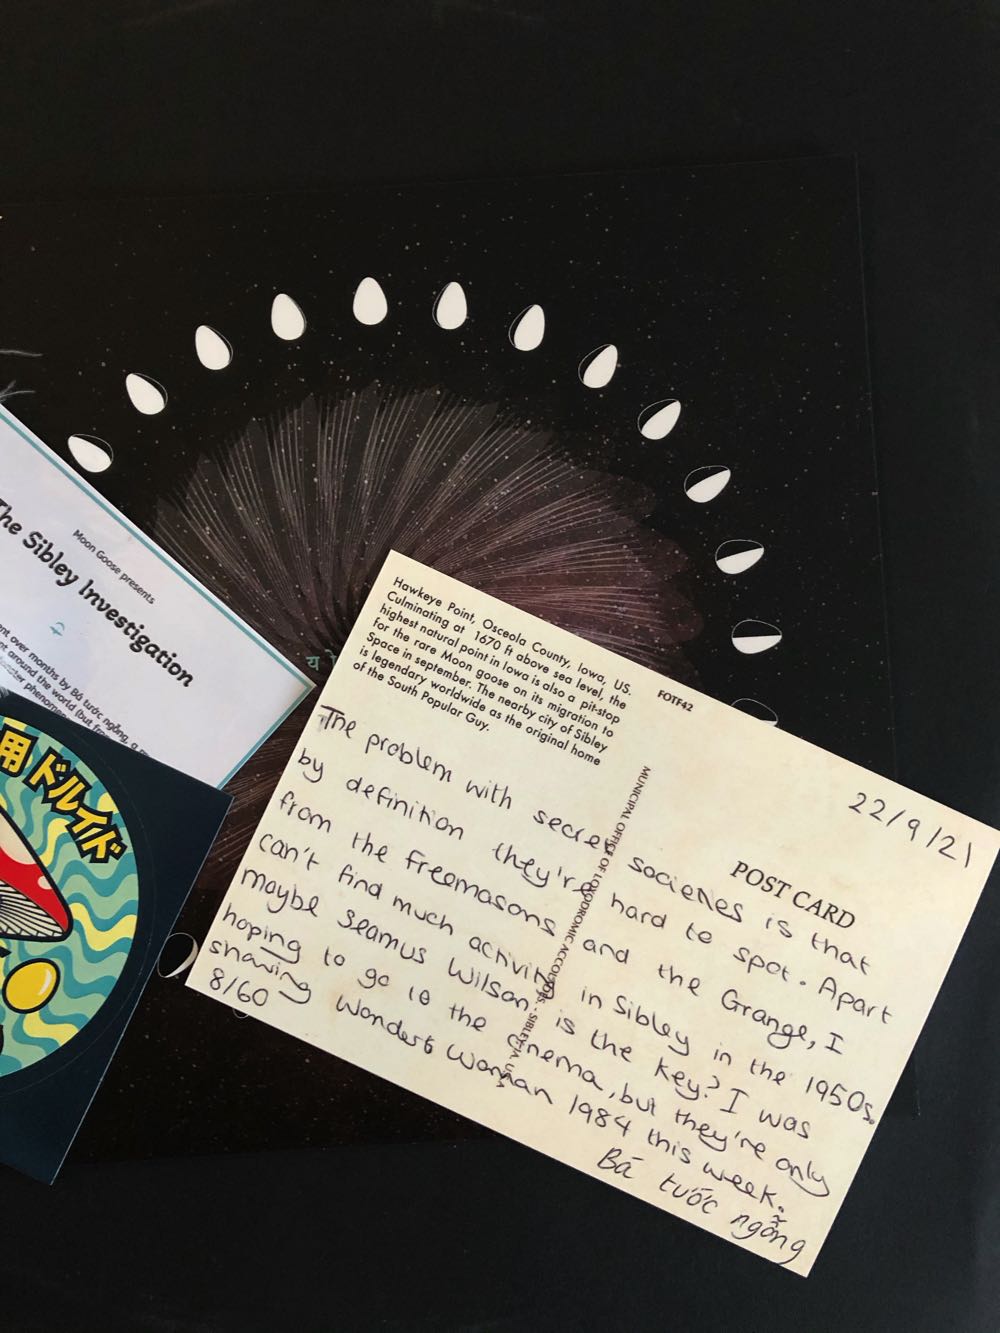 Moon Goose presents
The Sibley Investigation
over months by Bá tước ngỗng, a
around the world (but
phenomen
用 ドルイド
य
Hawkeye Point, Osceola County, Iowa, US.
Culminating at 1670 ft above sea level, the
highest natural point in Iowa is also a pit-stop
for the rare Moon goose on its migration to
Space in september. The nearby city of Sibley
is legendary worldwide as the original home
of the South Popular Guy.
FOTF42
MUNICIPAL OFFICE OF LOXODROMIC ACCOUNTS - SIBLEY, IA, US
POST CARD
22/9/21
The problem with secret societies is that
by definition they're hard to spot. Apart
from the freemasons and the Grange, I
can't find much activity in Sibley in the 1950s.
maybe Seamus Wilson is the key? I was
hoping to go to the cinema, but they're only
showing Wonder Woman 1984 this week.
8/60
Bá tước ngỗng